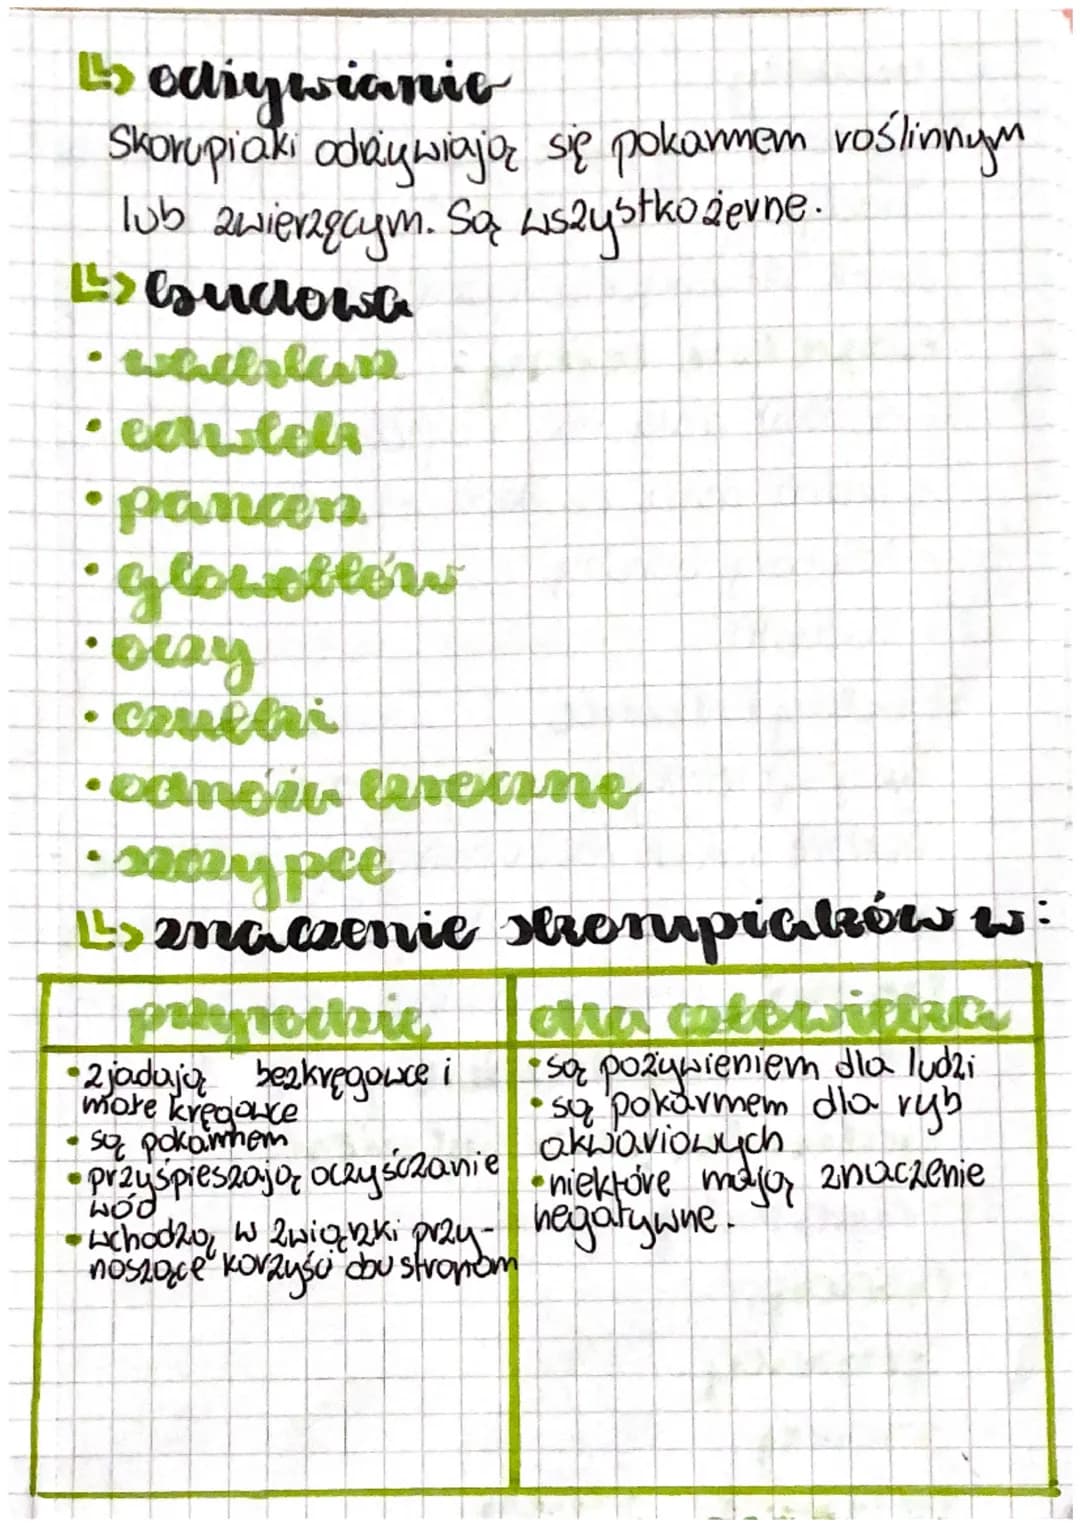 odżywianie
Skorupiaki odżywiają się pokarmem roślinnym
lub zwierzęcym. Są wszystkożerne.
budowa
• wachlarz
• odwłok
• pancerz
• głowotłów
• oczy
• czułki
• odnóża kroczne
• szczypce
znaczenie skorupiaków w:
przyrodzie
• zjadają bezkręgowce i
małe kręgowce
• są pokarmem
• przyśpieszają oczyszczanie
wód
• wchodzą w związki przy-
noszące korzyści obu stronom
dla człowieka
• są pożywieniem dla ludzi
• są pokarmem dla ryb
akwariowych
• niektóre mają znaczenie
negatywne.